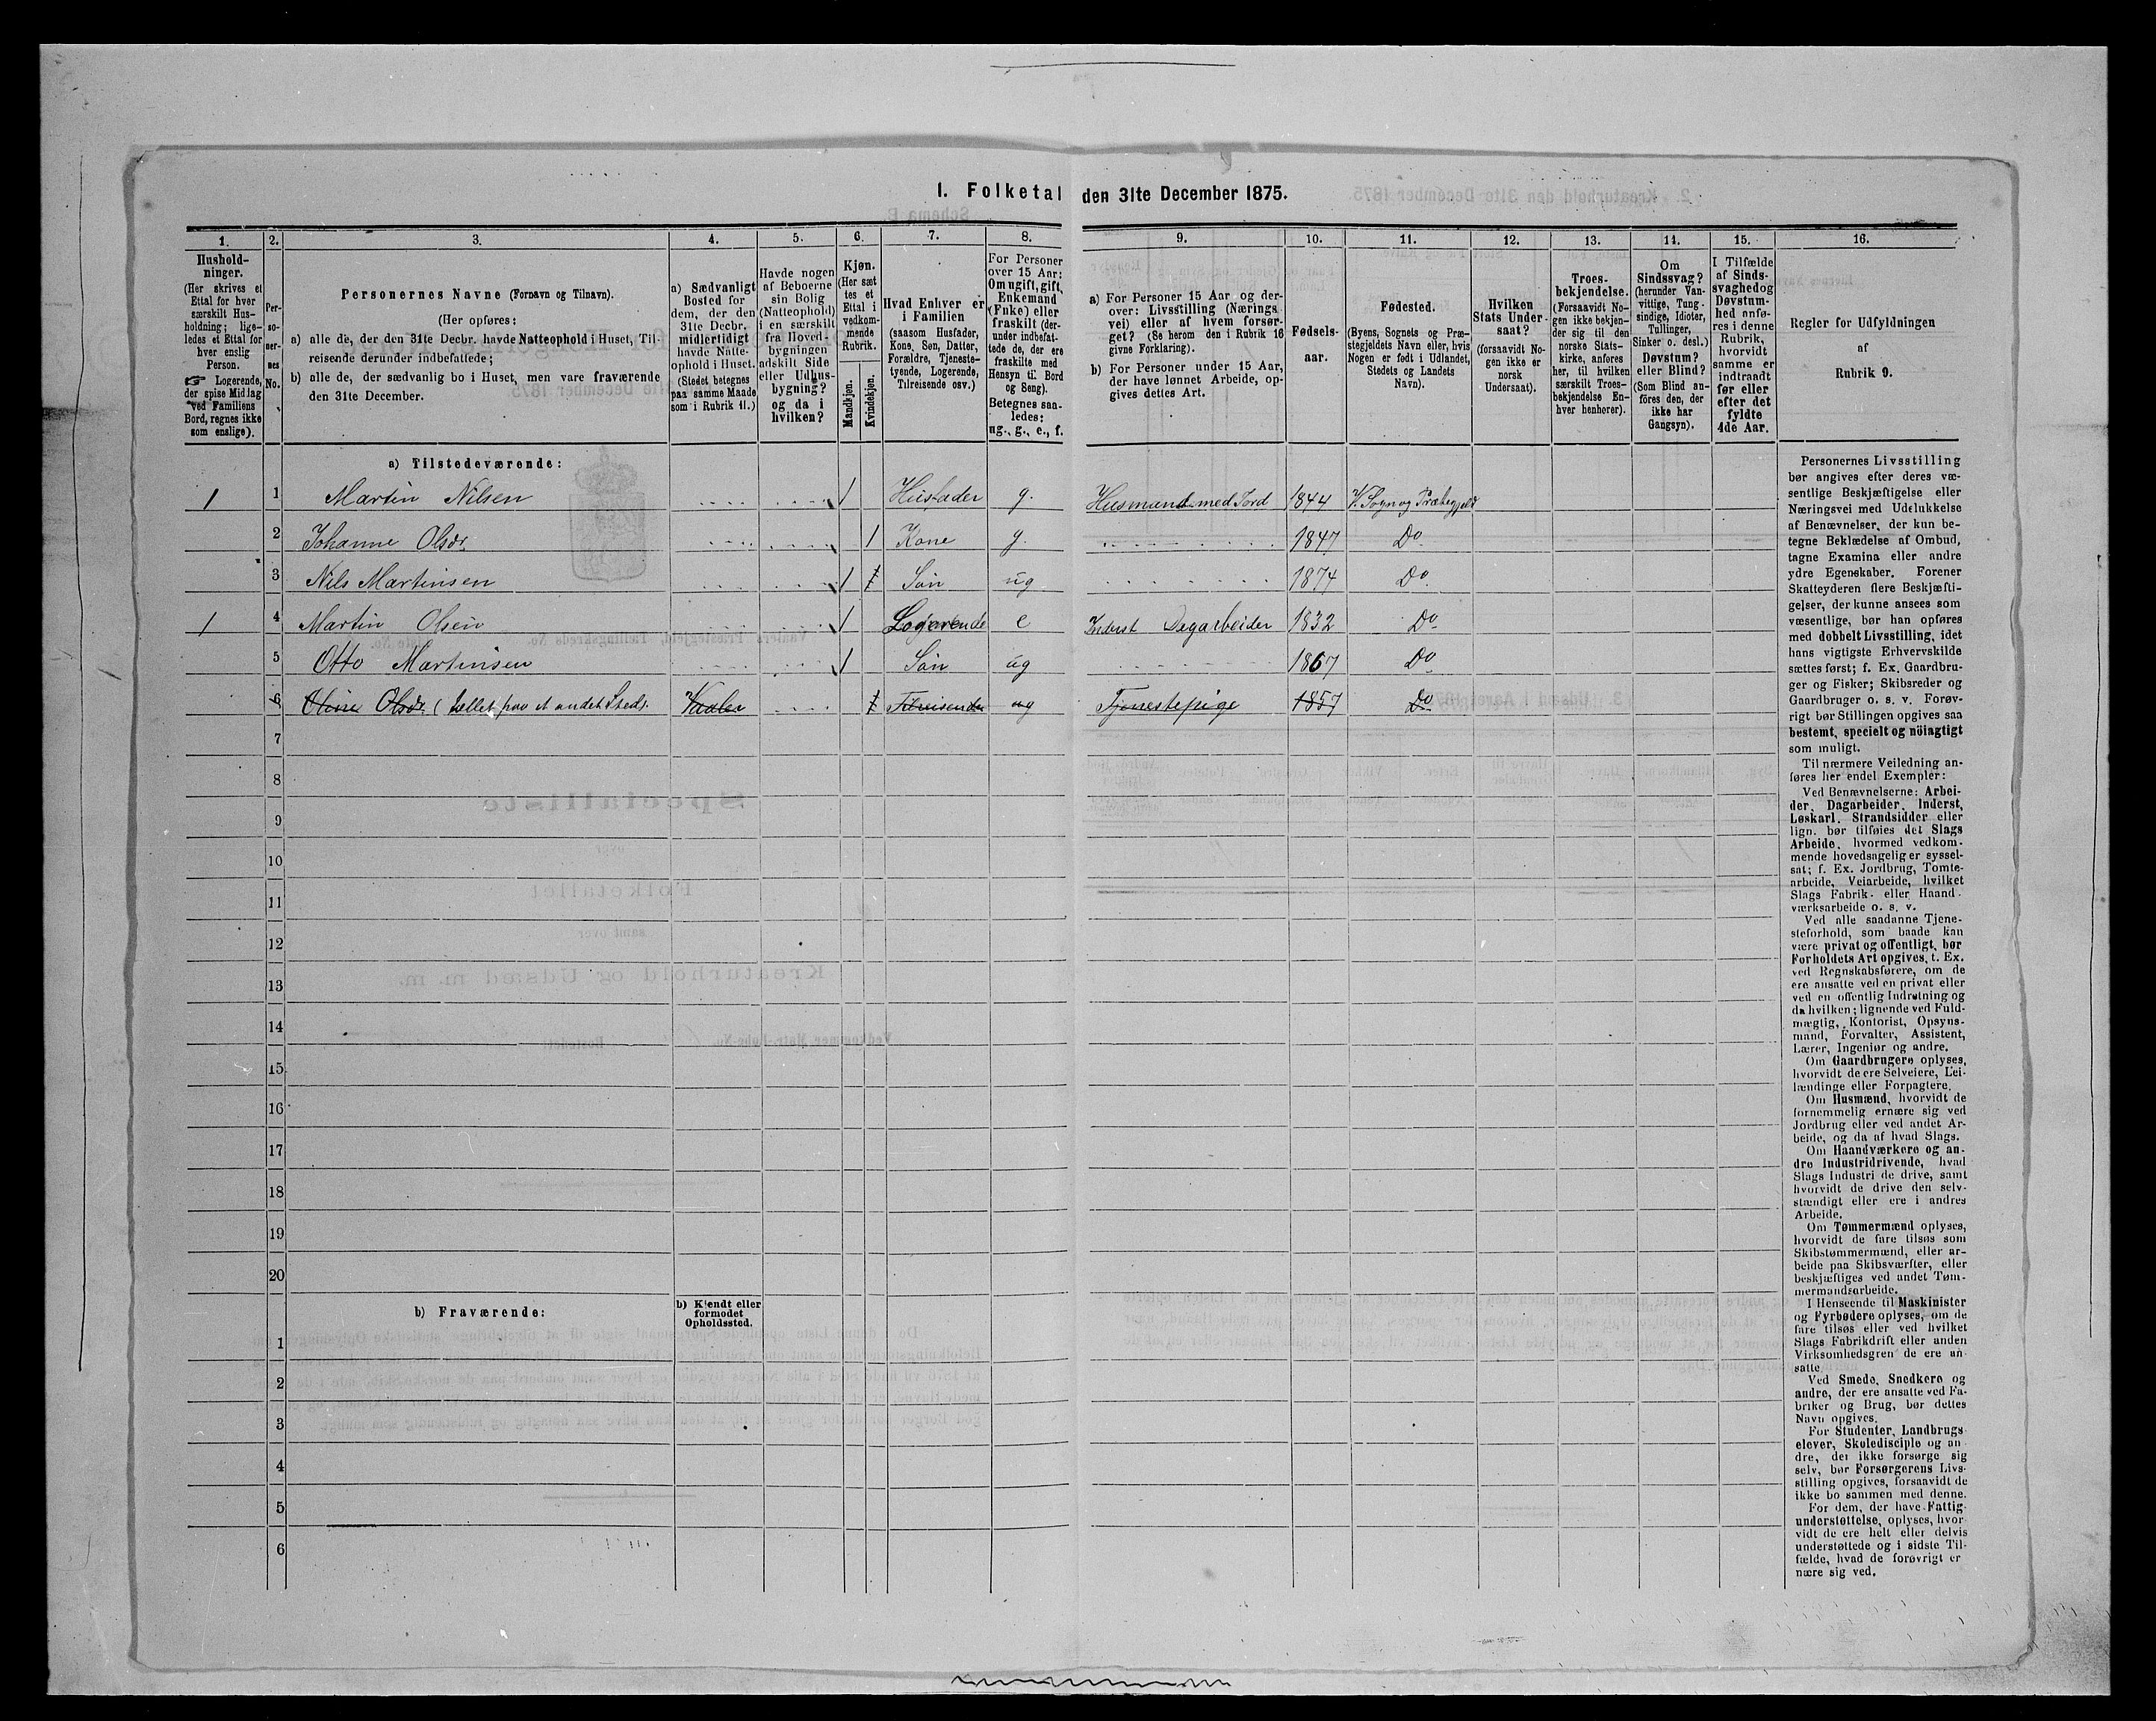 1. Folketal den 31te December 1875.
1. 2. 3. 4. 5. 6. 7. 8. 9. 10. 11. 12. 13. 14. 15. 16.
Hushold-
ninger.
(Her skrives et
Ettal for hver
særskilt Hus-
holdning; lige-
ledes et Ettal for
hver enslig
Person.
☞ Logerende,
der spise Middag
ved Familiens
Bord, regnes ikke
som enslige).
Per-
so-
ner-
nes
No.
Personernes Navne (Fornavn og Tilnavn).
(Her opføres:
a) alle de, der den 31te Decbr. havde Natteophold i Huset, Til-
reisende derunder indbefattede;
b) alle de, der sædvanlig bo i Huset, men vare fraværende
den 31te December.
a) Sædvanligt
Bosted for
dem, der den
31te Decbr.
midlertidigt
havde Natte-
ophold i Huset.
(Stedet betegnes
paa samme Maade
som i Rubrik 11.)
Havde nogen
af Beboerne
sin Bolig
(Natteophold)
i en særskilt
fra Hoved-
bygningen
adskilt Side
eller Udhus-
bygning?
og da i
hvilken?
Kjøn.
(Her sæt
tes et
Ettal i
vedkom-
mende
Rubrik.
Mandkjøn.
Kvindekjøn.
Hvad Enhver er
i Familien
(saasom Husfader,
Kone, Søn, Datter,
Forældre, Tjeneste-
tyende, Logerende,
Tilreisende osv.)
For Personer
over 15 Aar:
Om ugift, gift,
Enkemand
(Enke) eller
fraskilt (der-
under indbefat-
tede de, der ere
fraskilte med
Hensyn til Bord
og Seng).
Betegnes saa-
ledes:
ug., g., e., f.
a) For Personer 15 Aar og der-
over: Livsstilling (Nærings
vei) eller af hvem forsør-
get? (Se herom den i Rubrik 16
givne Forklaring).
b) For Personer under 15 Aar,
der have lønnet Arbeide, op-
gives dettes Art.
Fødsels-
aar.
Fødested.
(Byens, Sognets og Præ-
stegjeldets Navn eller, hvis
Nogen er født i Udlandet,
Stedets og Landets
Navn).
Hvilken
Stats Under-
saat?
(forsaavidt No-
gen ikke er
norsk
Undersaat).
Troes-
bekjendelse.
(Forsaavidt No-
gen ikke bekjen-
der sig til den
norske Stats-
kirke, anføres
her, til hvilken
særskilt Troes-
bekjendelse En-
hver henhører).
Om
Sindssvag?
(herunder Van-
vittige, Tung-
sindige, Idioter,
Tullinger,
Sinker o. desl.)
Døvstum?
eller Blind?
(Som Blind an-
føres den, der
ikke har
Gangsyn).
I Tilfælde
af Sinds-
svaghedog
Døvstum-
hed anfø-
res i denne
Rubrik,
hvorvidt
samme er
indtraadt
før eller
efter det
fyldte
4de Aar.
Regler for Udfyldningen
af
Rubrik 9.
a) Tilstedeværende:
1 1 Martin Nilsen 1 Husfader g. Husmand med Jord 1844 V. Sogn og Præstegjeld
2 Johanne Olsdr. 1 Kone g. 1847 Do
3 Nils Martinsen 1 Søn ug 1874 Do.
1 4 Martin Olsen 1 Logerende e Inderst Dagarbeider 1832 Do
5 Otto Martinsen 1 Søn ug 1867 Do
6 Oline Olsdr. (tællet paa et andet Sted). Vaaler Tilreisende ug Tjenestepige 1857 Do
7
8
9
10
11
12
13
14
15
16
17
18
19
20
b) Fraværende:
b) Kjendt eller
formodet
Opholdssted.
1
2
3
4
5
6
Personernes Livsstilling
bør angives efter deres væ-
sentlige Beskjæftigelse eller
Næringsvei med Udelukkelse
af Benævnelser, der kun be-
tegne Beklædelse af Ombud,
tagne Examina eller andre
ydre Egenskaber. Forener
Skatteyderen flere Beskjæfti-
gelser, der kunne ansees som
væsentlige, bør han opføres
med dobbelt Livsstilling, idet
hans vigtigste Erhvervskilde
sættes først; f. Ex. Gaardbru-
ger og Fisker; Skibsreder og
Gaardbruger o. s. v. Forøv-
rigt bør Stillingen opgives saa
bestemt, specielt og nöiagtigt
som muligt.
Til nærmere Veiledning an-
føres her endel Exempler:
Ved Benævnelserne: Arbei-
der, Dagarbeider, Inderst,
Løskarl, Strandsidder eller
lign. bør tilføies det Slags
Arbeide, hvormed vedkom-
mende hovedsagelig er syssel-
sat; f. Ex. Jordbrug, Tomte-
arbeide, Veiarbeide, hvilket
Slags Fabrik- eller Haand-
værksarbeide o. s. v.
Ved alle saadanne Tjene-
steforhold, som baade kan
være privat og offentligt, bør
Forholdets Art opgives, t. Ex.
ved Regnskabsførere, om de
ere ansatte ved en privat eller
ved en offentlig Indretning og
da hvilken; lignende ved Fuld-
mægtig, Kontorist, Opsyns-
mand, Forvalter, Assistent,
Lærer, Ingeniør og andre.
Om Gaardbrugere oplyses,
hvorvidt de ere Selveiere, Lei-
lændinge eller Forpagtere.
Om Husmænd, hvorvidt de
fornemmelig ernære sig ved
Jordbrug eller ved andet Ar-
beide, og da af hvad Slags.
Om Haandværkere og an-
dre Industridrivende, hvad
Slags Industri de drive, samt
hvorvidt de drive den selv-
stændigt eller ere i andres
Arbeide.
Om Tømmermænd oplyses,
hvorvidt de fare tilsøs som
Skibstømmermænd, eller ar-
beide paa Skibsværfter, eller
beskjæftiges ved andet Tøm-
mermandsarbeide.
I Henseende til Maskinister
og Fyrbødere oplyses, om de
fare tilsøs eller ved hvilket
Slags Fabrikdrift eller anden
Virksomhedsgren de ere an-
satte
Ved Smede, Snedkere og
andre, der ere ansatte ved Fa-
briker og Brug, bør dettes
Navn opgives.
For Studenter, Landbrugs
elever, Skoledisciple og an-
dre, der ikke forsørge sig
selv, bør Forsørgerens Livs-
stilling opgives, forsaavidt de
ikke bo sammen med denne.
For dem, der have Fattig-
understøttelse, oplyses, hvor-
vidt de ere helt eller delvis
understøttede og i sidste Til-
fælde, hvad de forøvrigt er
nære sig ved.